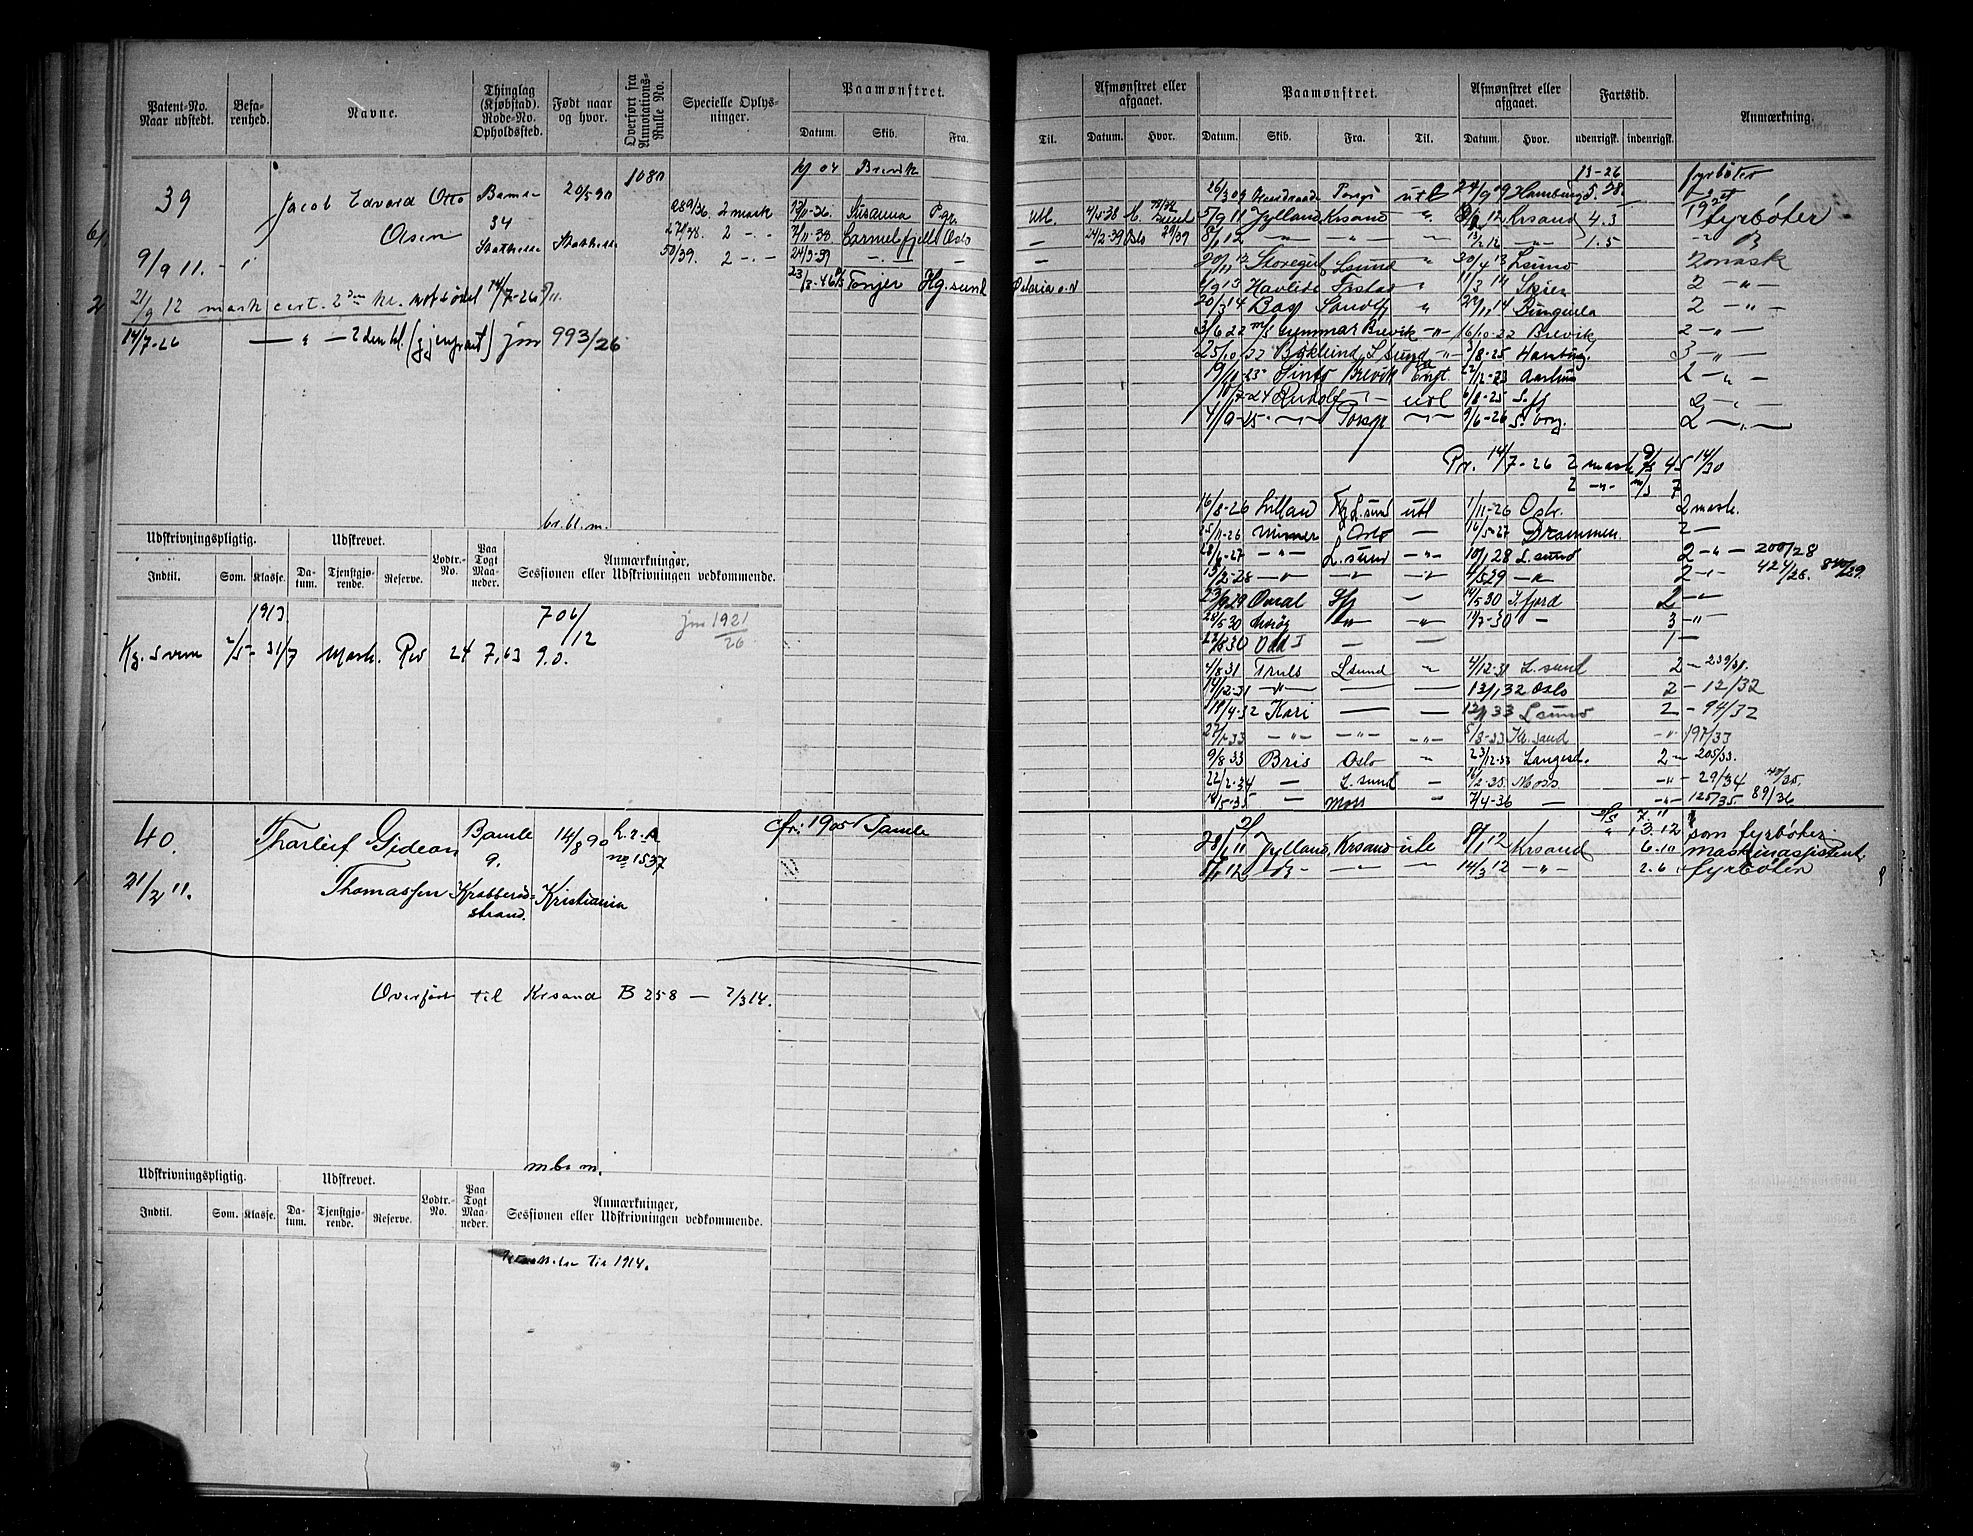 Patent-No. Naar udstedt.
Befarenhed.
Navne.
Thinglag (Kjøbstad). Rode-No. Opholdssted.
Født naar og hvor.
Overført fra Annotations-Rulle No.
Specielle Oplysninger.
Paamønstret.
Datum. Skib. Fra. Til.
Afmønstret eller afgaaet.
Datum. Hvor.
Paamønstret.
Datum. Skib. Fra. Til.
Afmønstret eller afgaaet.
Datum. Hvor.
Fartstid.
udenrigsk. indenrigsk.
Anmærkning.
39 Jacob Edvard Otto Bamle 20/5 90 1080
Olsen 34
Stathelle Stathelle
9/9 11.
21/9 12 mask cert. 2den kl. 14/7-26
14/7-26 — " — 2den kl. (gjenpart) jnr 993/26
289/36. 2 mask
27/38. 2 -.-
50/39. 2 -.-
04 Brevik
Susanna Pgr. Utl.
7/11-38 Carmelfjell Oslo — 24/2-39 Oslo
24/3-39 -.- — —
23/3-46 Tonjer Hg.sund
13-26 fyrbøter
26/3 09 Porsgr utl 24/9 09 Hamburg 5.28.
5/9 11 Jylland Krsand " 12 Krsand 4.3 fyrbøter
8/1 12 — " — — " — " 13/2 12 — " — 1.5
Storegut Lsund 30/4 13 Lsund 2 mask
9 13 Havlide Frstad " 1/3 14 Skien 2 - " -
20/3 14 Sandefj " 14 2 - " -
3/6 22 m/s Gunnar Brevik - " - 16/10-22 Brevik 2 - " -
25/10-22 Bøklund L sund - " - /8-25 Hamburg. 3 - " -
Sinto Brevik Engl. Aarhus 2 - " -
Rudolf - " - utl 6/8-25 S.fj 2 - " -
4/9-25 - " - Porsgr - " - 9/6-26 S.borg. 2 - " -
Pr. 14/7-26 2 mask d/s 45 14/30
2 - " - m/s 7
16/8-26 Lilland L.sund utl 1/11-26 Osl. 2 mask.
25/11-26 Mimer Oslo — 16/5-27 Drammen 2 —
28/6-27 - " - L.sund - " - 10/1 28 L.sund 2 - " - 200/28
13/2-28 - " - - " - - " - 4/5 29 - " - 2 - " - 424/28. 840/29.
23/9 29 Sfj 14/5 30 S.fjord 2 - "
28/5 30 - " - - " - 14/7-30 — 3 - "
22/8 30 Odd I — — 1 —
4/8 31 Truls Lsund " 4/12-31 L.sund 2 - 239/31.
14/12-31 - " - — — 13/1 32 Oslo 2 - 12/32
18/4-32 Kari — — 12/1 33 Lsund 2 - 94/32
27/1-33 - " - - " - - " - 5/8-33 Kr.sand - " - 197/33
9/8 33 Bris Oslo " 23/12-33 Langesd. 2 - 205/33.
22/2-34 — L.sund — 14/2-35 Moss - " - 29/34 40/35.
18/5-35 — Moss " 7/4-36 — - " - 125/35 89/36
br.bl.m.
Udskrivningspligtig. Udskrevet. Lodtr.-No. Paa Togt Maaneder. Anmærkninger, Sessionen eller Udskrivningen vedkommende.
Indtil. Som. Klasse. Datum. Tjenstgjørende. Reserve.
1913 706/12 jnr 1921/26
Kg. Sverre 2/5 - 31/7 Mask. Res 24 7,63 9.0.
40. Tharleif Gideon Bamle 14/8 90 h.r.A no 1537
9.
21/2 11. Thomassen Krabberødstrand. Kristiania
1905 Bamle
d/s 7. "
" 3.12 som fyrbøter
28/1 11 Jylland, Krsand utl 8/1 12 Krsand 6.10 maskinassistent
8/1 12 - " - — 14/3 12 - " - 2.6 fyrbøter
Overført til Krsand B 258 — 2/3 14.
m br m.
Udskrivningspligtig. Udskrevet. Lodtr.-No. Paa Togt Maaneder. Anmærkninger, Sessionen eller Udskrivningen vedkommende.
Indtil. Som. Klasse. Datum. Tjenstgjørende. Reserve.
til 1914.